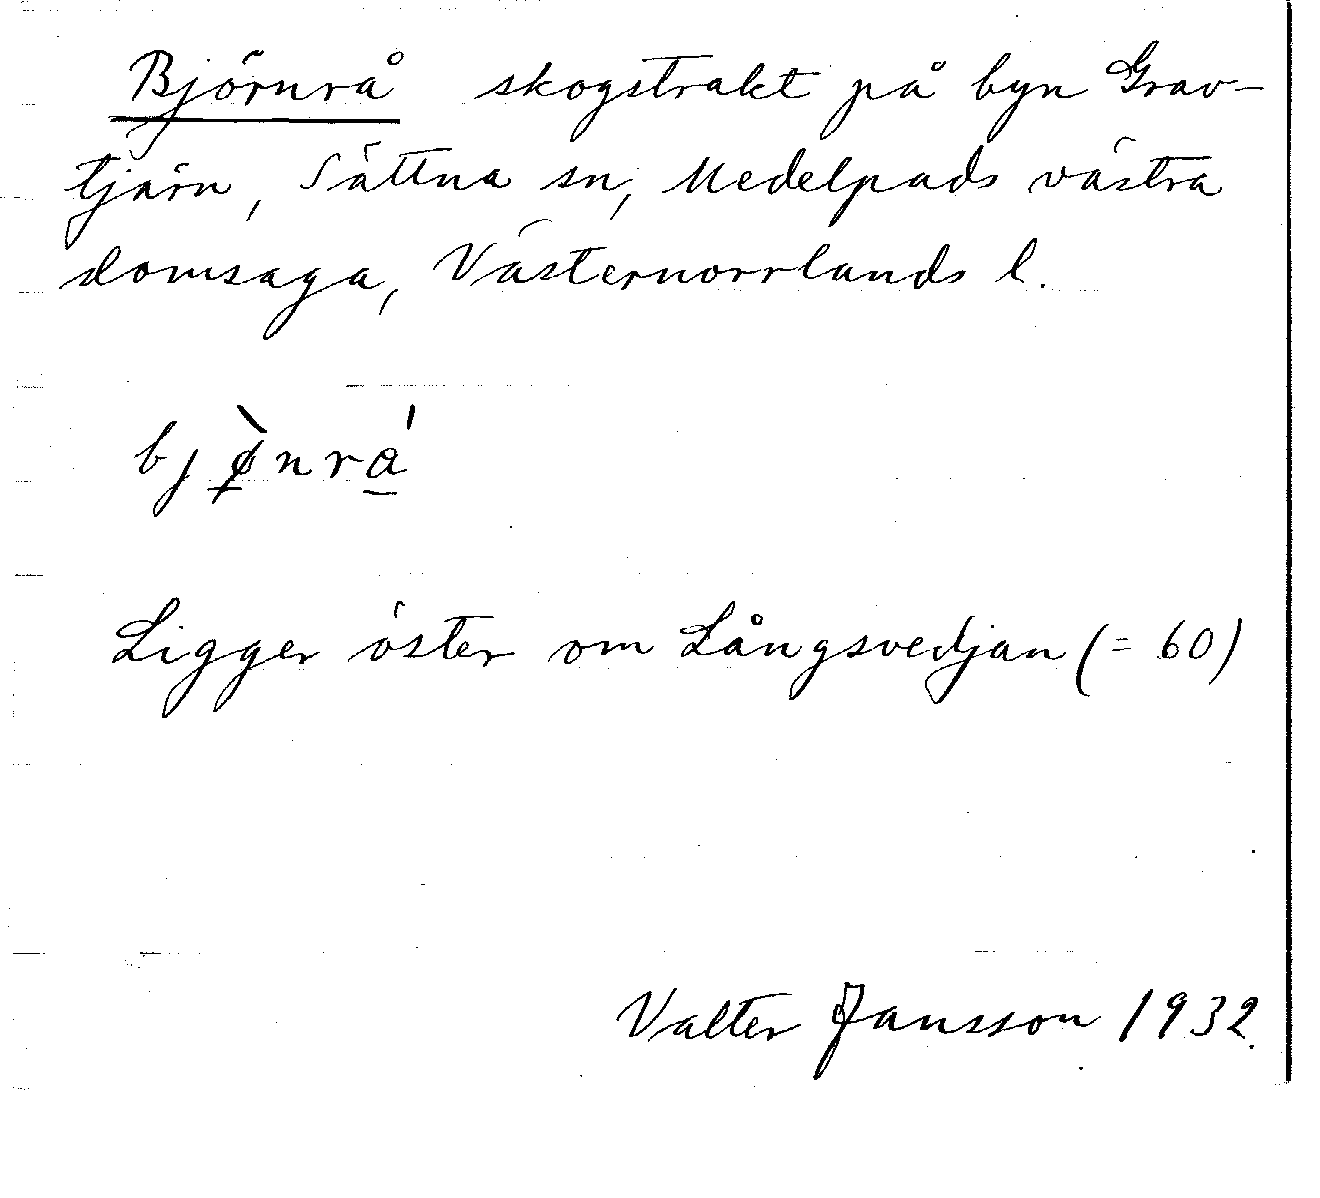 Björnrå skogstrakt på byn Grav-
tjärn, Sättna sn, Medelpads västra
domsaga, Västernorrlands l.
bjø̠̀nrá̠
Ligger öster om Långsvedjan (= 60)
Valter Jansson 1932.